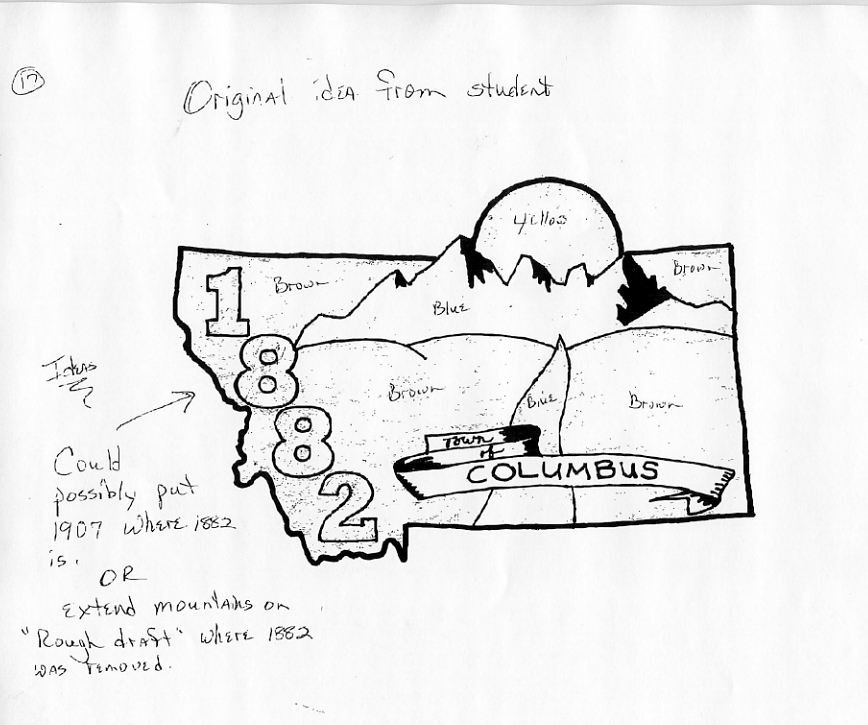 17
Original idea from student
Yellow
Brown
Brown
Blue
1882
Brown
Blue
Brown
Town
of
COLUMBUS
Ideas
Could
possibly put
1907 where 1882
is.
OR
extend mountains on
"Rough draft" where 1882
was removed.